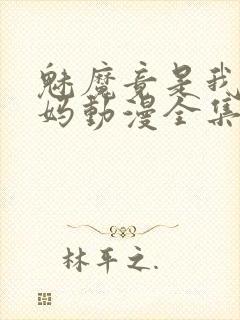 魅魔竟是我
妈動漫全集
林平之.